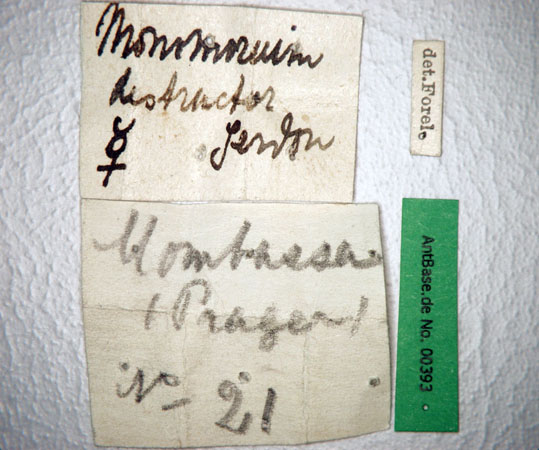 Monomorium
destructor
☿ Jerdon
det. Forel.
Mombassa
(Prager)
No 21
AntBase.de No. 00393